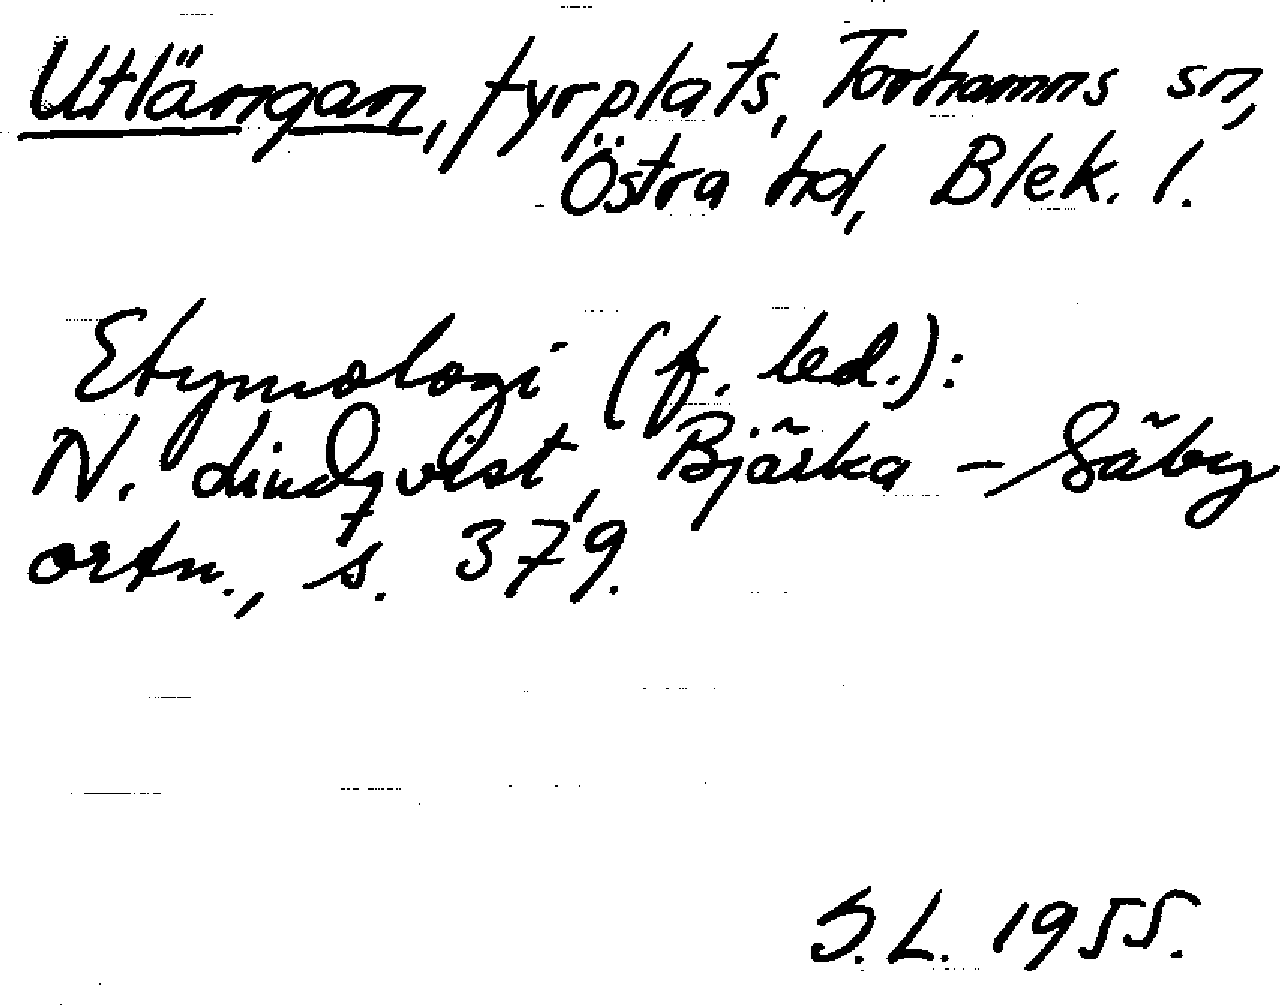 Utlängan, fyrplats, Torhamns sn,
Östra hd, Blek. l.
Etymologi (f. led.):
N. Lindqvist, Bjärka-Säby
ortn., s. 379.
S.L. 1955.